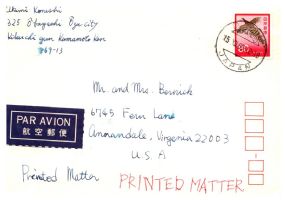 325 Obayashi Ozu city
Kikuchi gun Kumamoto Ken
869-13
80
JAPAN
Mr. and Mrs. Bernick
6745 Fern Lane
Annandale, Virginia 22003
U.S.A
PAR AVION
航空郵便
Printed Matter
PRINTED MATTER